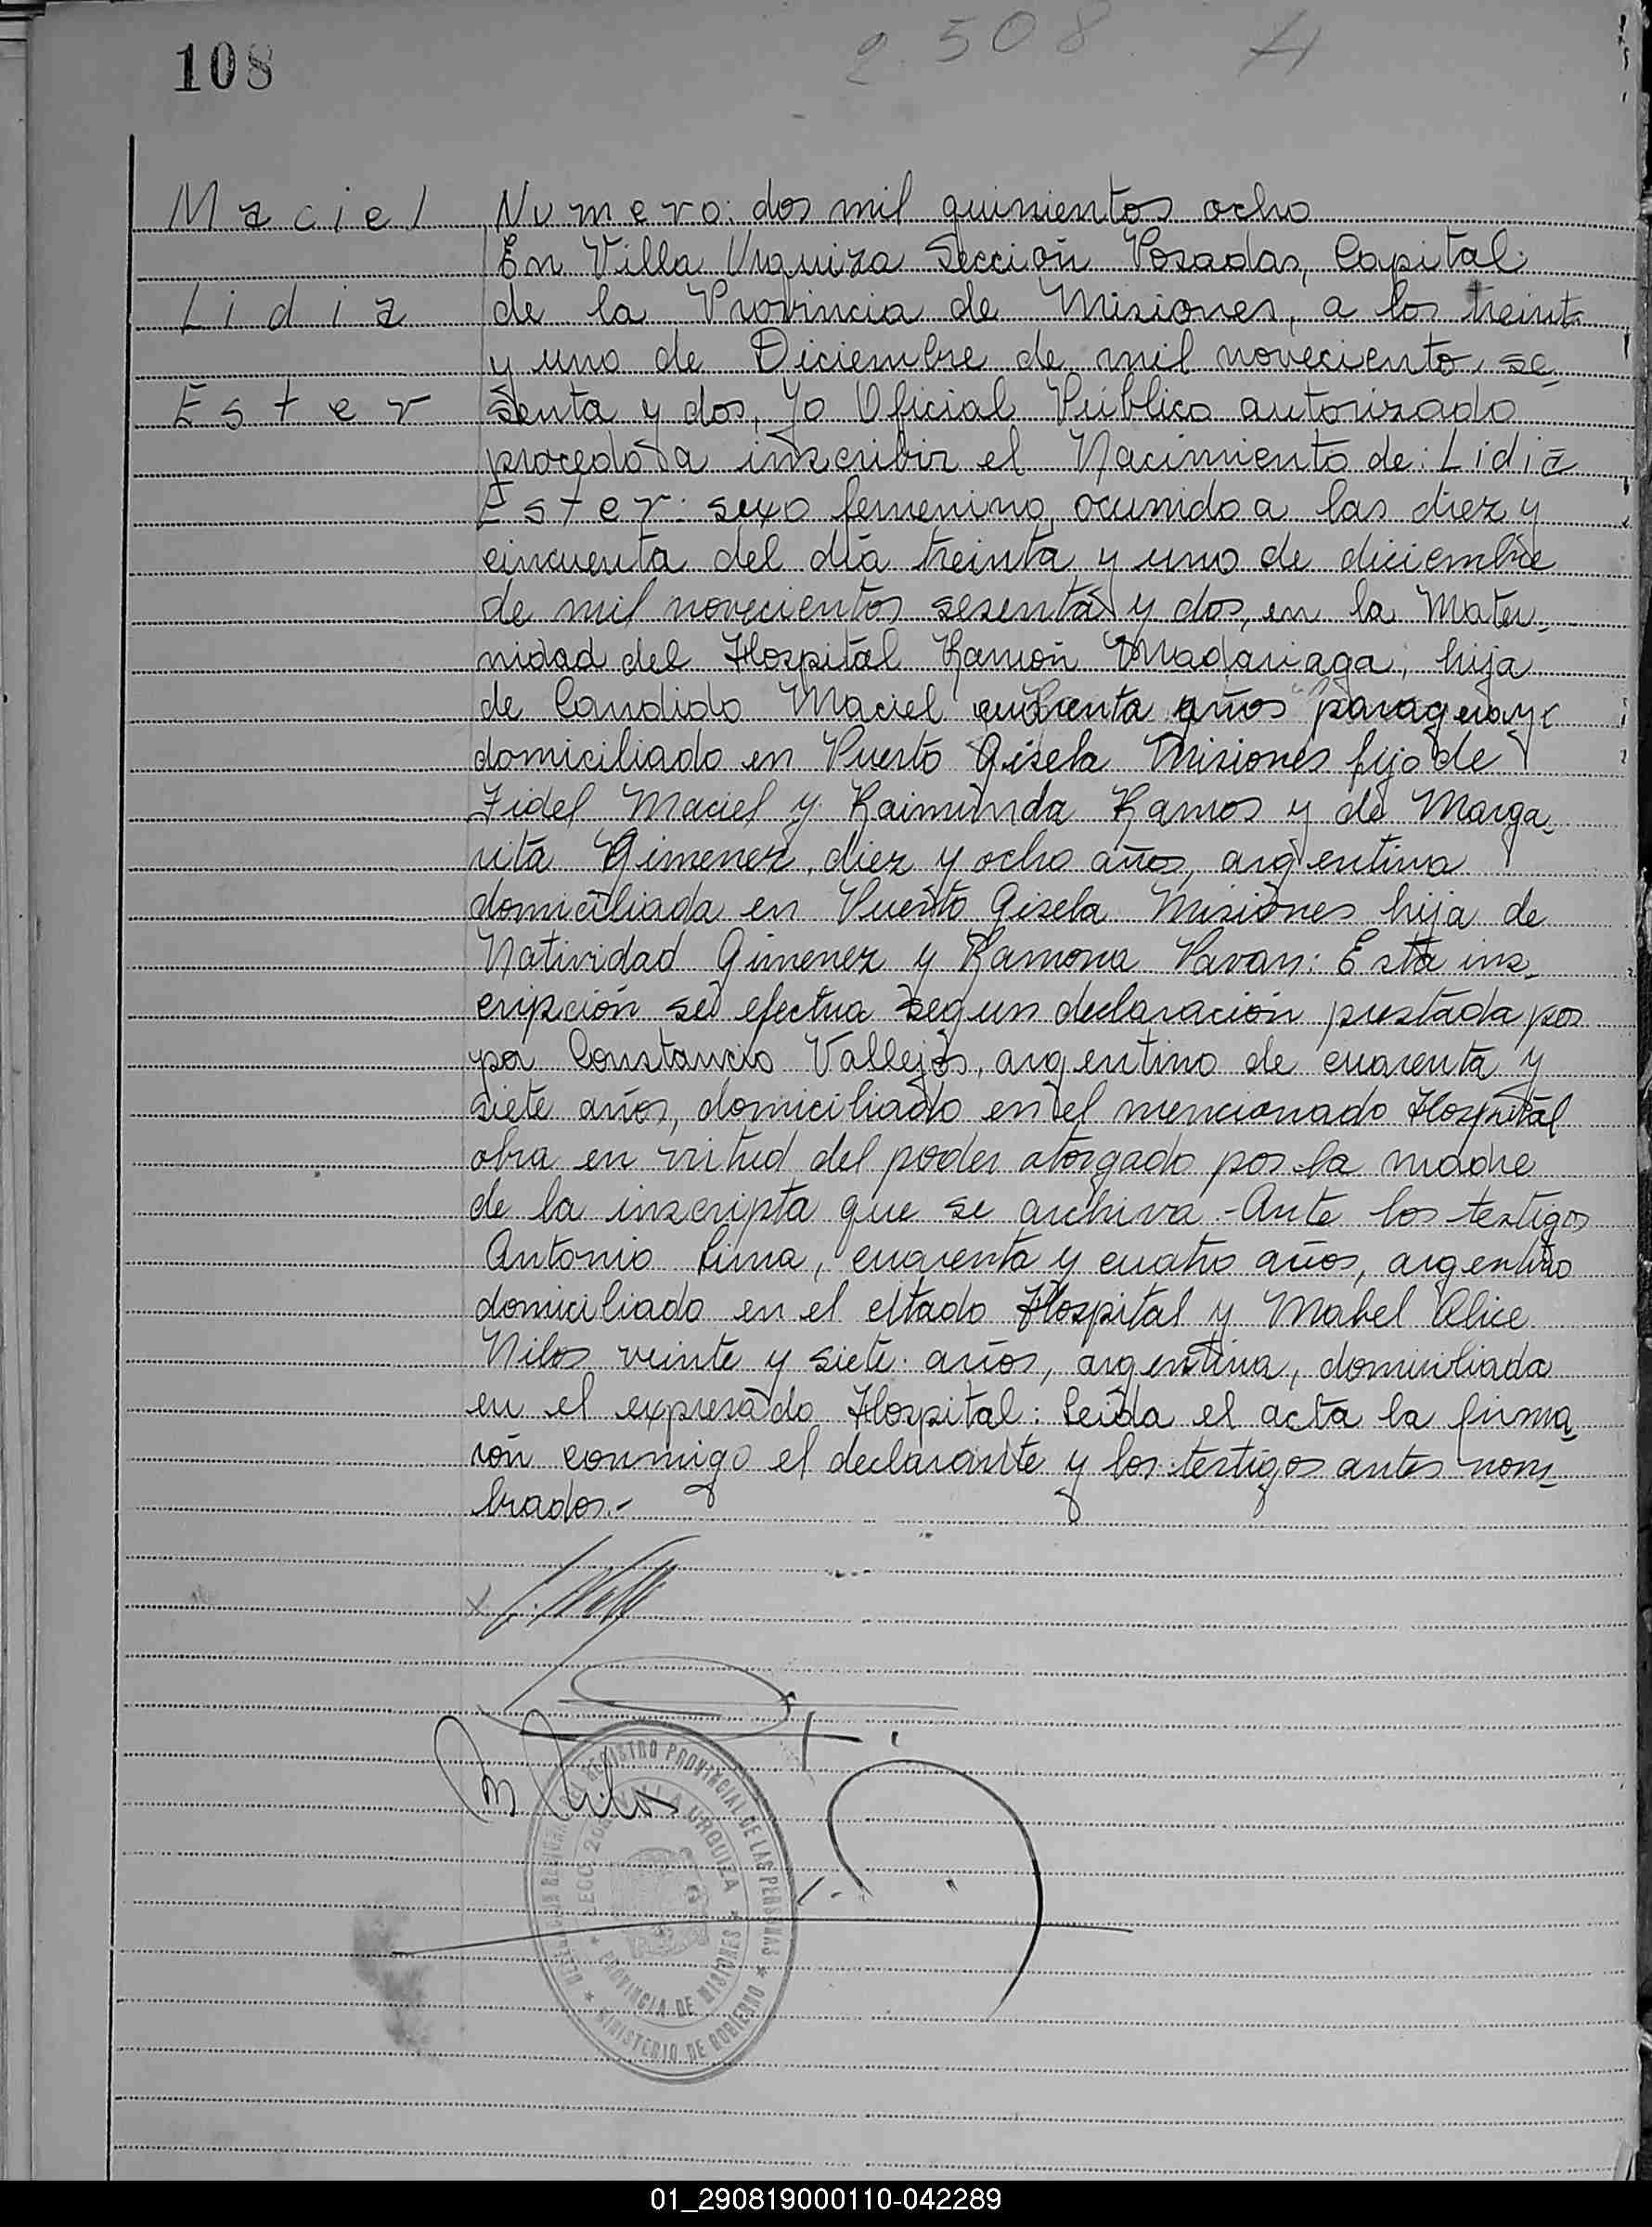 108
2508 A
Maciel Numero: dos mil quinientos ocho
En Villa Urquiza Sección Posadas, Capital
Lidia de la Provincia de Misiones, a los treinta
y uno de Diciembre de mil noveciento, se-
Ester senta y dos, Yo Oficial Público autorizado
procedo a inscribir el Nacimiento de: Lidia
Ester: sexo femenino, ocurrido a las diez y
cincuenta del día treinta y uno de diciembre
de mil novecientos sesenta y dos, en la Mater-
nidad del Hospital Ramón Madariaga, hija
de Candido Maciel cuarenta años paraguayo
domiciliado en Puerto Gisela Misiones hijo de
Fidel Maciel y Raimunda Ramos y de Marga-
rita Gimenez, diez y ocho años, argentina
domiciliada en Puerto Gisela Misiones hija de
Natividad Gimenez y Ramona Pavan: Esta ins-
cripción se efectua segun declaración prestada por
por Constancio Vallejos, argentino de cuarenta y
siete años, domiciliado en el mencionado Hospital
obra en virtud del poder otorgado por la madre
de la inscripta que se archiva - Ante los testigos
Antonio Lima, cuarenta y cuatro años, argentino
domiciliado en el citado Hospital y Mabel Alice
Nilos veinte y siete años, argentina, domiciliada
en el expresado Hospital: Leída el acta la firma-
rón conmigo el declarante y los testigos antes nom-
brados.-
REGISTRO PROVINCIAL DE LAS PERSONAS
SECC 2da VILLA URQUIZA
PROVINCIA DE MISIONES
MINISTERIO DE GOBIERNO
01_290819000110-042289